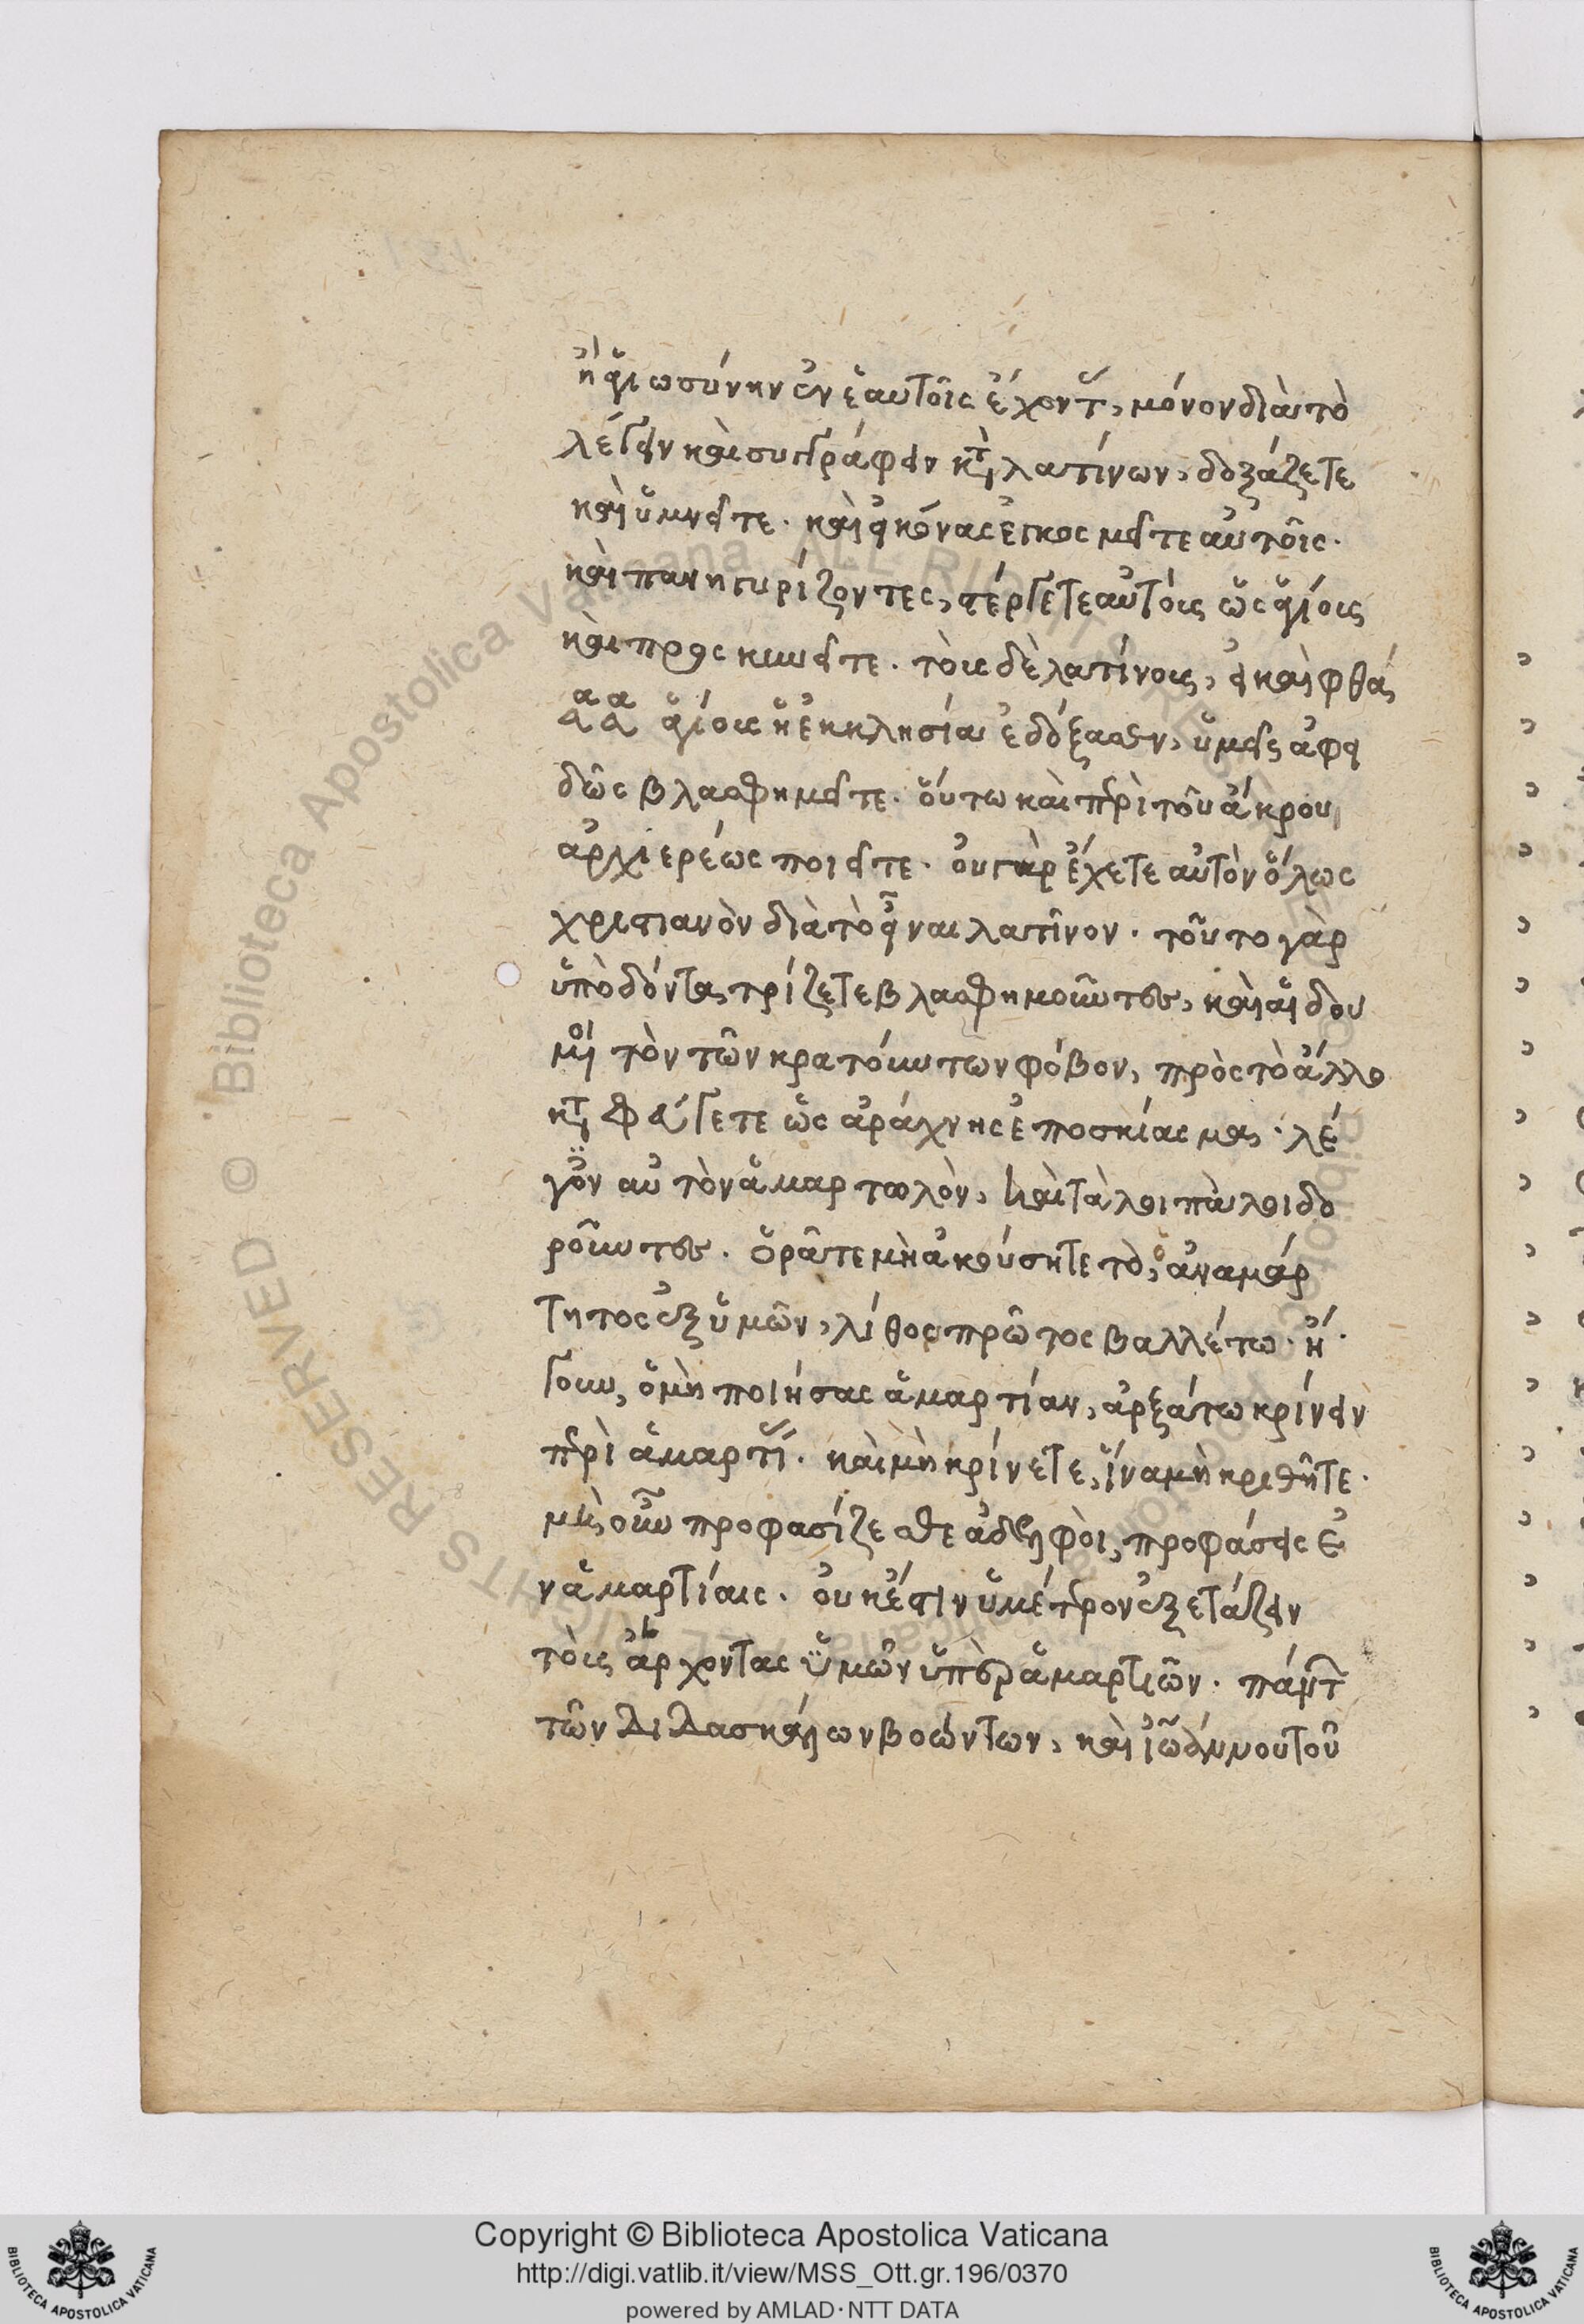 ἢ ἁγιωσύνην ἐν ἑαυτοῖς ἔχοντ, μόνον διὰ τὸ
λέγειν καὶ συγγράφειν κτ λατίνων, δοξάζετε
καὶ ὑμνεῖτε. καὶ εἰκόνας ἐγκοσμεῖτε αὐτοῖς.
καὶ πανηγυρίζοντες, στέργετε αὐτοὺς ὡς ἁγίους
καὶ προσκυνεῖτε. τοὺς δὲ λατίνους, εἰ καὶ
ἁγίους ἡ ἐκκλησία ἐδόξασεν, ὑμεῖς ἀφει
δῶς βλασφημεῖτε. οὕτω καὶ περὶ τοῦ ἄκρου
ἀρχιερέως ποιεῖτε. οὐ γὰρ ἔχετε αὐτὸν ὅλως
χριστιανὸν διὰ τὸ εἶναι λατῖνον. τοῦτο γὰρ
ὑπὸ δόντα τρίζετε βλασφημοῦντες, καὶ αἰδου
μοι τὸν τῶν κρατούντων φόβον, πρὸς τὸ ἄλλο
φεύγετε ὡς ἀράχνης ἐπὸ σκίασμα. λέ
γον αὐτὸν ἁμαρτωλὸν, καὶ τὰ λοιπὰ λοιδο
ροῦντες. ὁρᾶτε μὴ ἀκούσητε τὸ, ὁ ἀναμάρ
τητος ἐξ ὑμῶν, λίθος πρῶτος βαλλέτω. ἤ
γουν, ὁ μὴ ποιήσας ἁμαρτίαν, ἀρξάτω κρίνειν
περὶ ἁμαρτι. καὶ μὴ κρίνετε, ἵνα μὴ κριθῆτε.
μὴ οὖν προφασίζεσθε ἀδελφοὶ, προφάσεις ἐ
ν ἁμαρτίαις. οὐκ ἔστιν ὑμέτερον ἐξετάζειν
τοὺς ἄρχοντας ὑμῶν ὑπὲρ ἁμαρτιῶν. πάντ
τῶν διδασκάλων βοώντων, καὶ ἰωάννου τοῦ
Copyright © Biblioteca Apostolica Vaticana
http://digi.vatlib.it/view/MSS_Ott.gr.196/0370
powered by AMLAD · NTT DATA